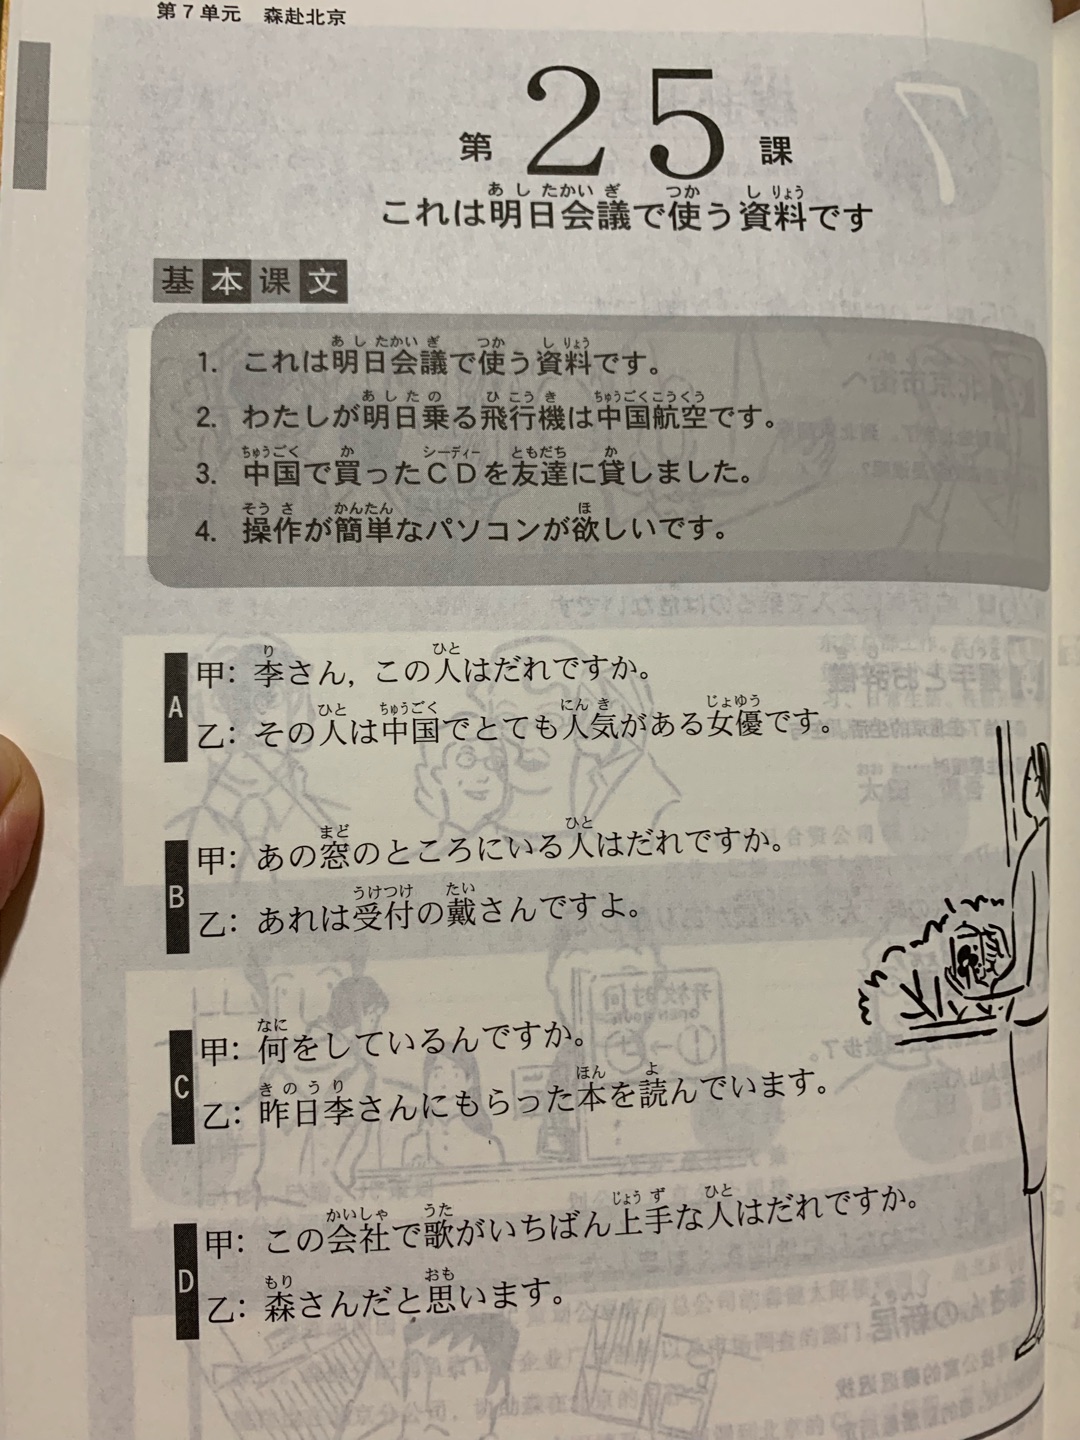 第7单元　森赴北京
第25課
これは明日会議で使う資料です
基本课文
1. これは明日会議で使う資料です。
2. わたしが明日乗る飛行機は中国航空です。
3. 中国で買ったCDを友達に貸しました。
4. 操作が簡単なパソコンが欲しいです。
A
甲：李さん，この人はだれですか。
乙：その人は中国でとても人気がある女優です。
B
甲：あの窓のところにいる人はだれですか。
乙：あれは受付の戴さんですよ。
C
甲：何をしているんですか。
乙：昨日李さんにもらった本を読んでいます。
D
甲：この会社で歌がいちばん上手な人はだれですか。
乙：森さんだと思います。